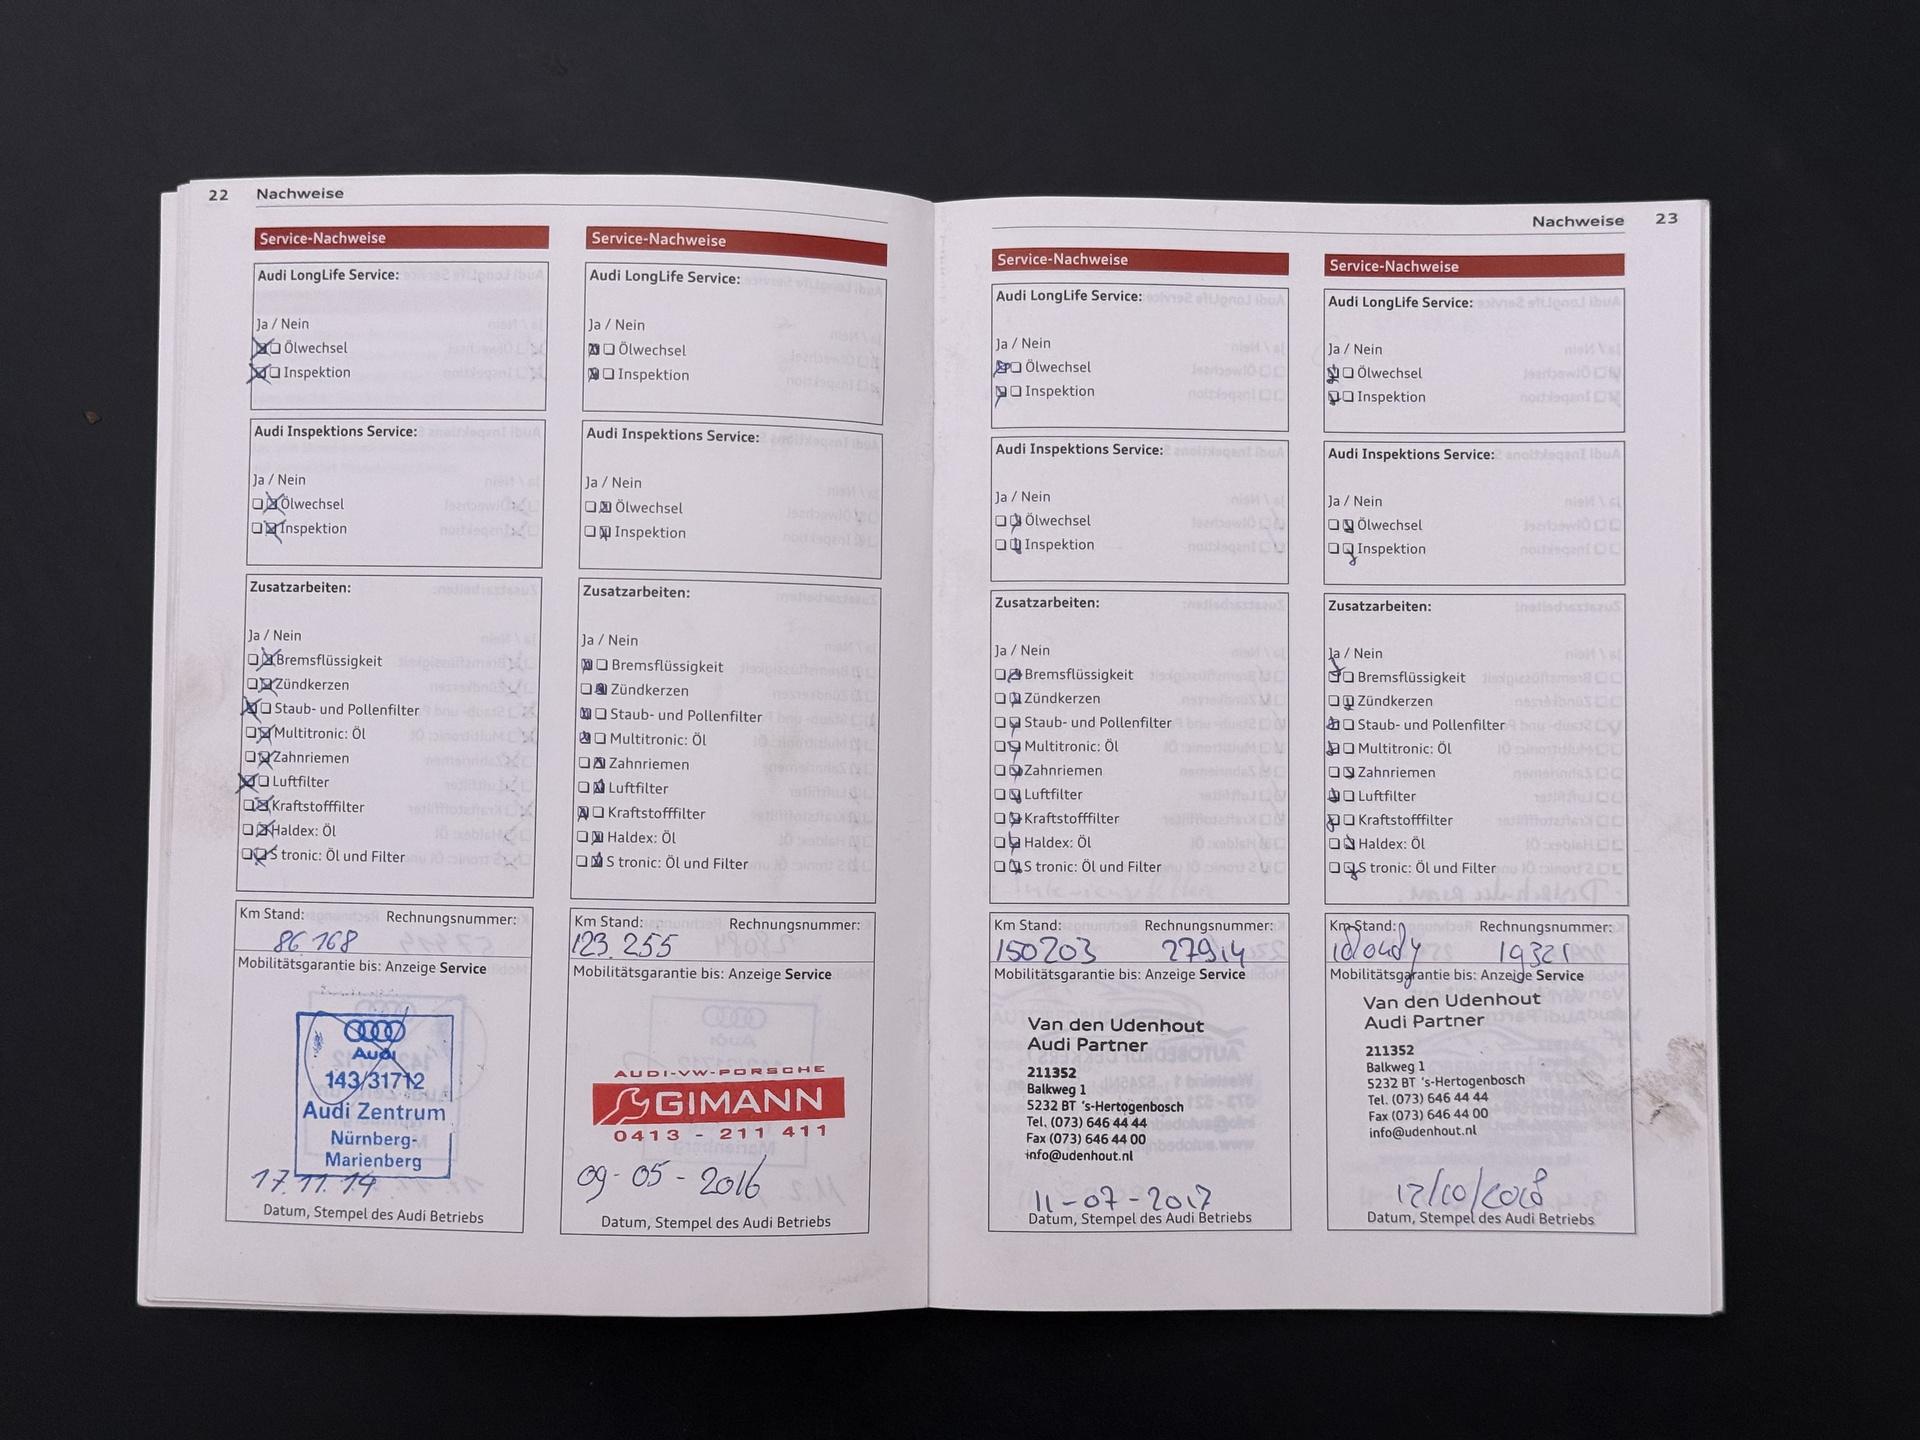 22 Nachweise
Service-Nachweise
Audi LongLife Service:
Ja / Nein
Ölwechsel
Inspektion
Audi Inspektions Service:
Ja / Nein
Ölwechsel
Inspektion
Zusatzarbeiten:
Ja / Nein
Bremsflüssigkeit
Zündkerzen
Staub- und Pollenfilter
Multitronic: Öl
Zahnriemen
Luftfilter
Kraftstofffilter
Haldex: Öl
S tronic: Öl und Filter
Km Stand: Rechnungsnummer:
86 168
Mobilitätsgarantie bis: Anzeige Service
Audi
143/31712
Audi Zentrum
Nürnberg-
Marienberg
17.11.14
Datum, Stempel des Audi Betriebs
Service-Nachweise
Audi LongLife Service:
Ja / Nein
Ölwechsel
Inspektion
Audi Inspektions Service:
Ja / Nein
Ölwechsel
Inspektion
Zusatzarbeiten:
Ja / Nein
Bremsflüssigkeit
Zündkerzen
Staub- und Pollenfilter
Multitronic: Öl
Zahnriemen
Luftfilter
Kraftstofffilter
Haldex: Öl
S tronic: Öl und Filter
Km Stand: Rechnungsnummer:
123.255
Mobilitätsgarantie bis: Anzeige Service
AUDI-VW-PORSCHE
GIMANN
0413 - 211 411
09-05-2016
Datum, Stempel des Audi Betriebs
Nachweise 23
Service-Nachweise
Audi LongLife Service:
Ja / Nein
Ölwechsel
Inspektion
Audi Inspektions Service:
Ja / Nein
Ölwechsel
Inspektion
Zusatzarbeiten:
Ja / Nein
Bremsflüssigkeit
Zündkerzen
Staub- und Pollenfilter
Multitronic: Öl
Zahnriemen
Luftfilter
Kraftstofffilter
Haldex: Öl
S tronic: Öl und Filter
Km Stand: Rechnungsnummer:
150203 27914
Mobilitätsgarantie bis: Anzeige Service
Van den Udenhout
Audi Partner
211352
Balkweg 1
5232 BT 's-Hertogenbosch
Tel. (073) 646 44 44
Fax (073) 646 44 00
info@udenhout.nl
11-07-2017
Datum, Stempel des Audi Betriebs
Service-Nachweise
Audi LongLife Service:
Ja / Nein
Ölwechsel
Inspektion
Audi Inspektions Service:
Ja / Nein
Ölwechsel
Inspektion
Zusatzarbeiten:
Ja / Nein
Bremsflüssigkeit
Zündkerzen
Staub- und Pollenfilter
Multitronic: Öl
Zahnriemen
Luftfilter
Kraftstofffilter
Haldex: Öl
S tronic: Öl und Filter
Km Stand: Rechnungsnummer:
19321
Mobilitätsgarantie bis: Anzeige Service
Van den Udenhout
Audi Partner
211352
Balkweg 1
5232 BT 's-Hertogenbosch
Tel. (073) 646 44 44
Fax (073) 646 44 00
info@udenhout.nl
12/10/2018
Datum, Stempel des Audi Betriebs